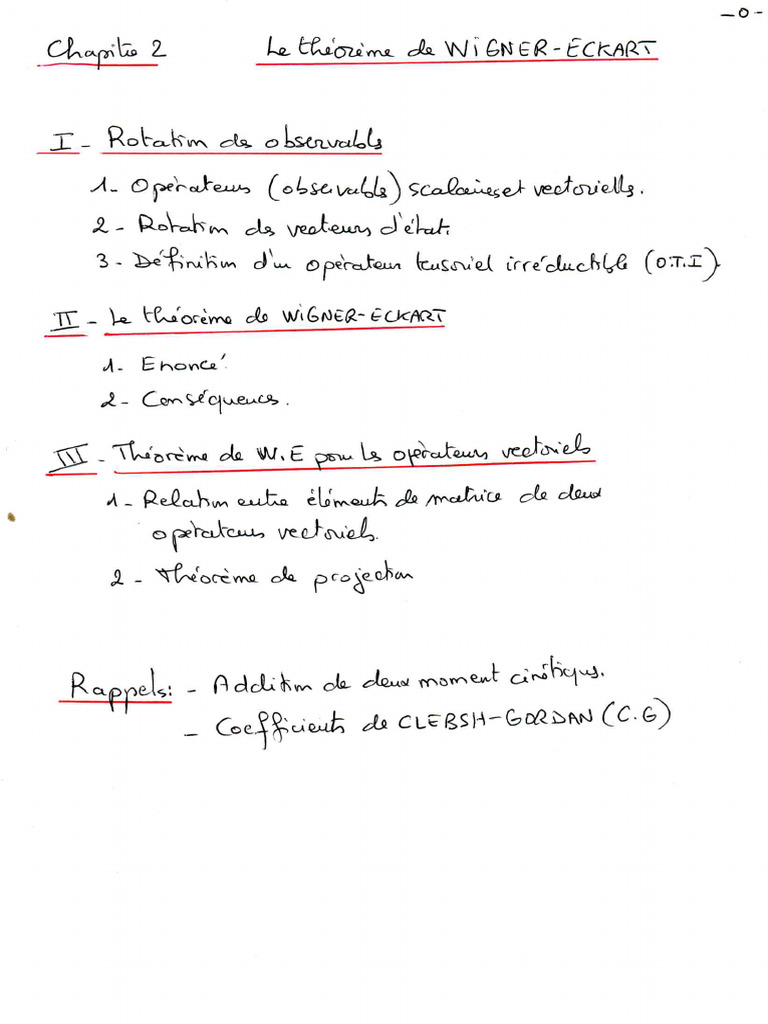 -0-
Chapitre 2 Le théorème de WIGNER-ECKART
I - Rotation des observables
1- Opérateurs (observables) scalaires et vectorielles.
2- Rotation des vecteurs d'état.
3- Définition d'un opérateur tensoriel irréductible (O.T.I).
II - Le théorème de WIGNER-ECKART
1- Enoncé.
2- Conséquences.
III - Théorème de W.E pour les opérateurs vectoriels
1- Relation entre éléments de matrice de deux
opérateurs vectoriels.
2- Théorème de projection
Rappels: - Addition de deux moment cinétiques.
- Coefficients de CLEBSH-GORDAN (C.G)